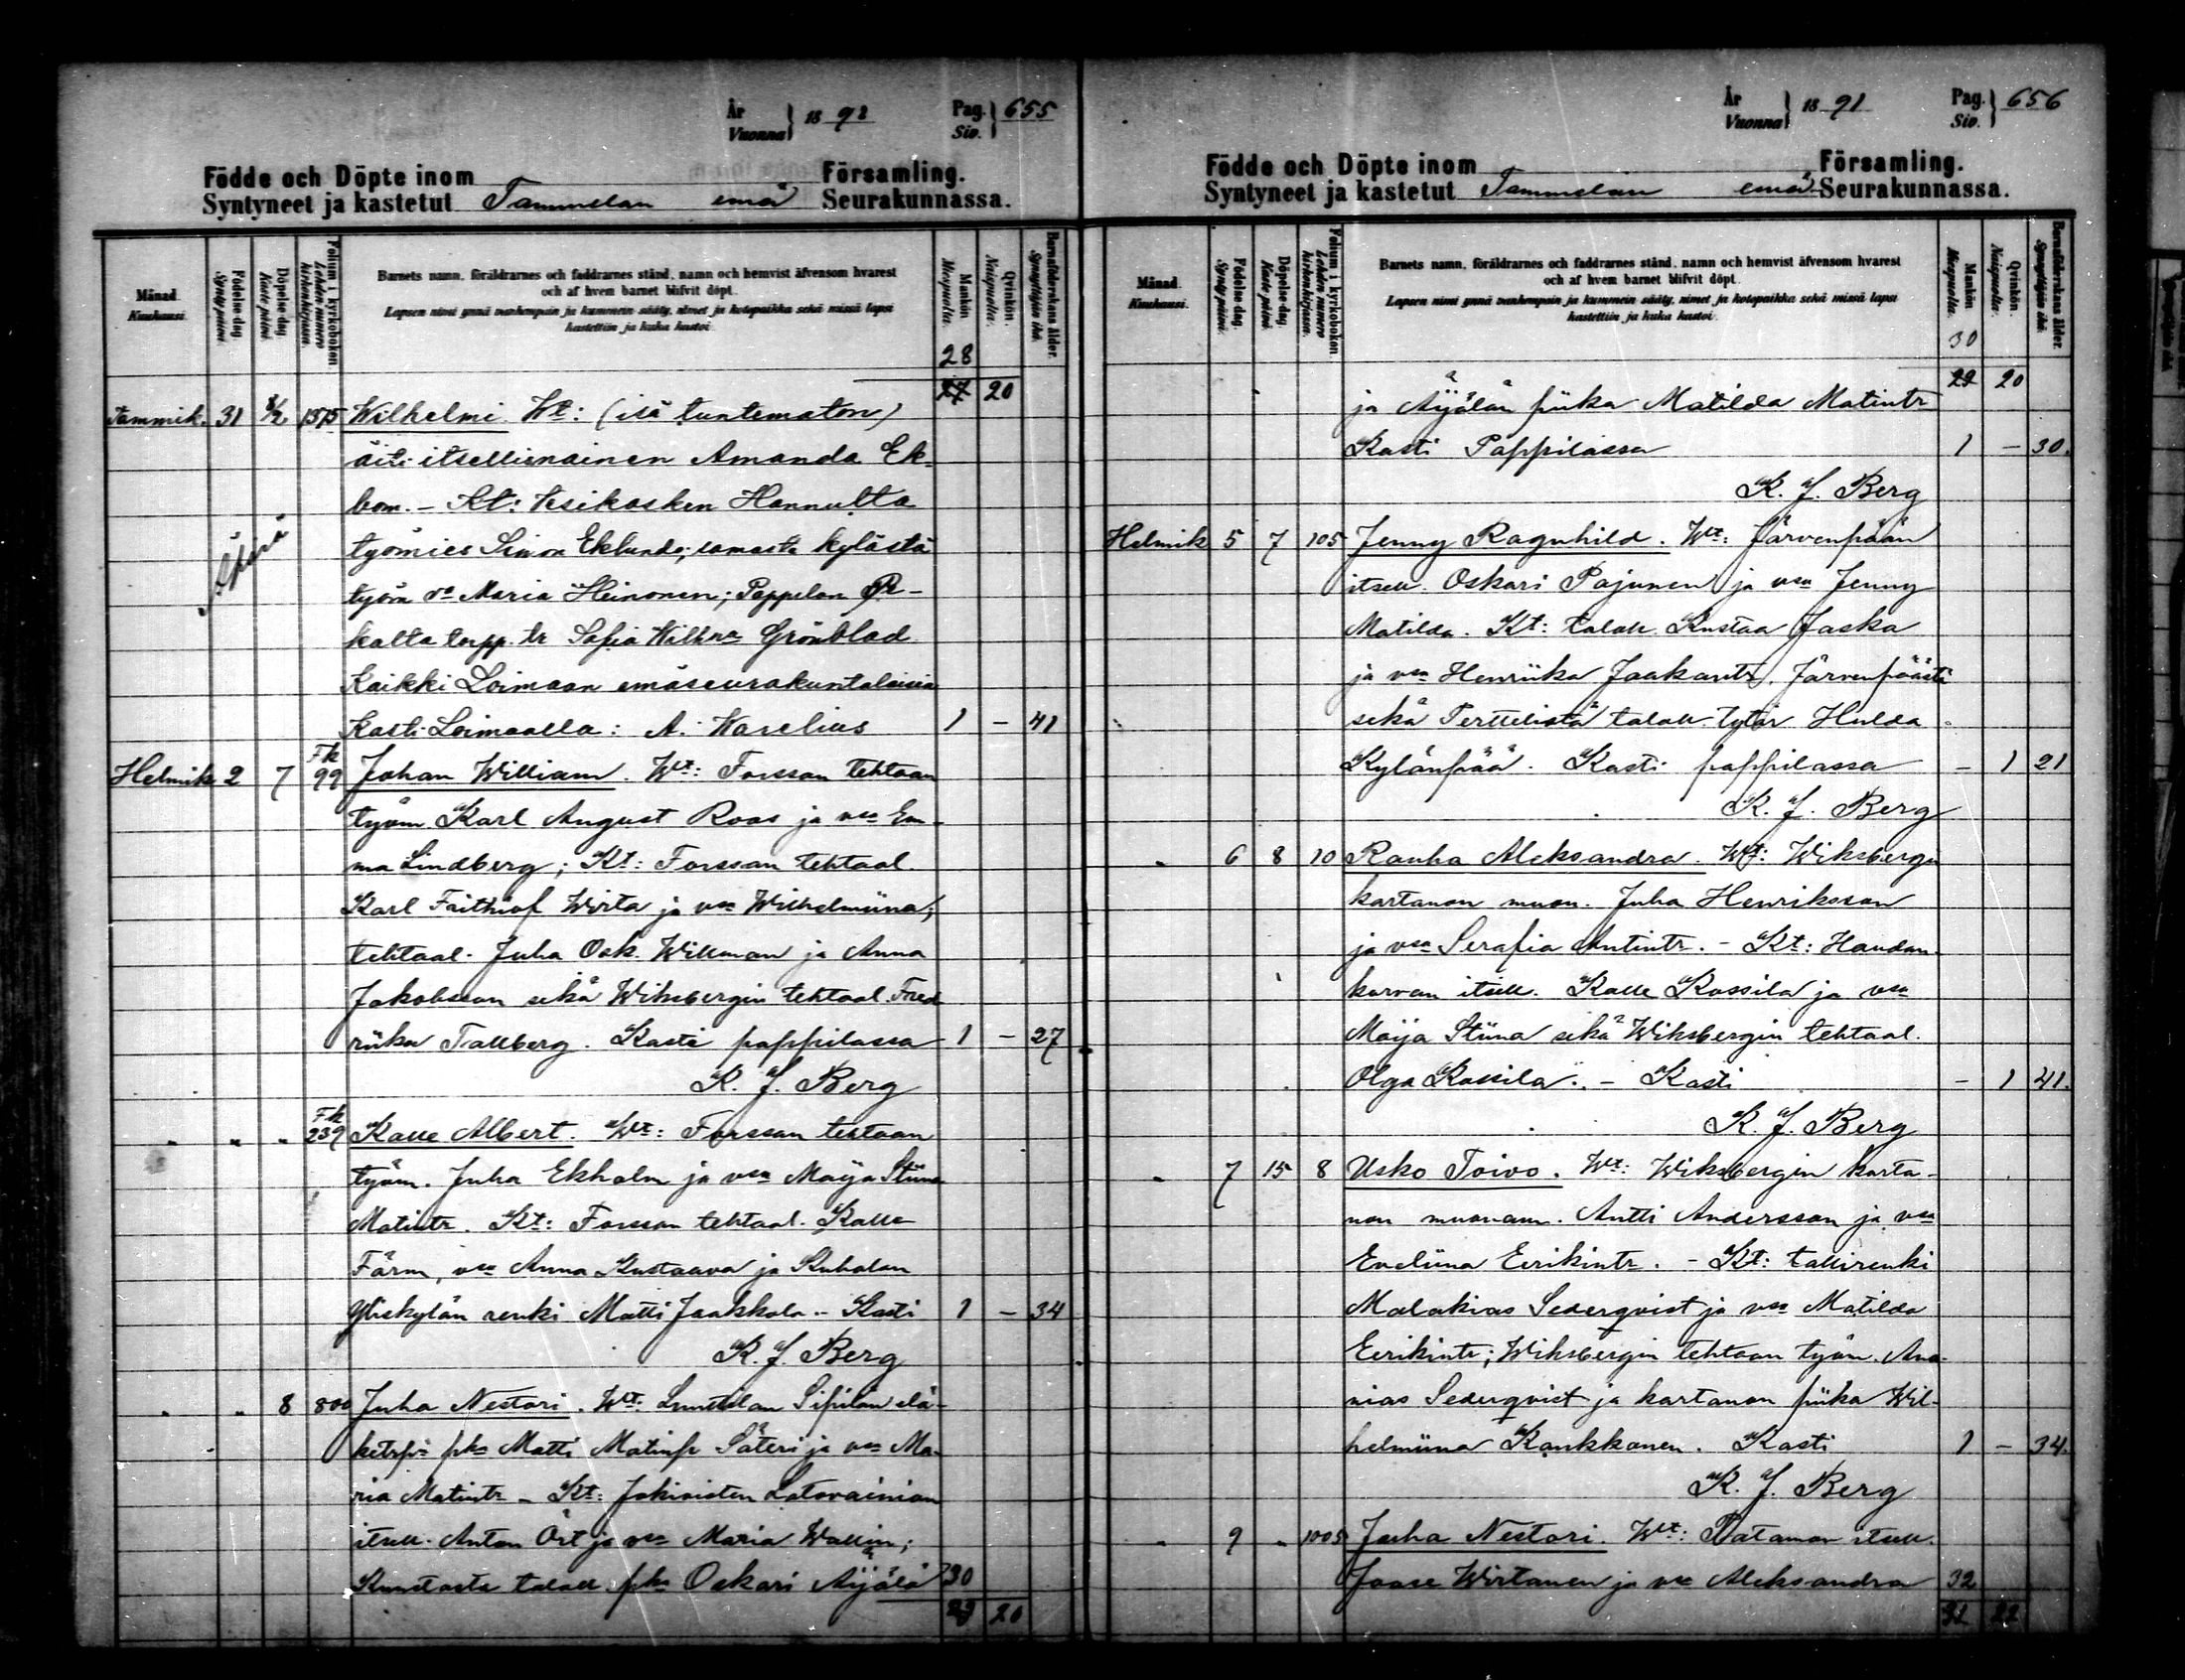 År
Vuonna } 18 92 Pag.
Siv. } 655
Födde och Döpte inom Församling.
Syntyneet ja kastetut Tammelan emä Seurakunnassa.
Månad. Kuukausi.
Födelse dag. Synty päivä.
Döpelse dag. Kaste päivä.
Folium i kyrkoboken. Lehden numero kirkonkirjassa.
Barnets namn, föräldrarnes och faddrarnes stånd, namn och hemvist äfvensom hvarest
och af hvem barnet blifvit döpt.
Lapsen nimi ynnä vanhempain ja kummein sääty, nimet ja kotopaikka sekä missä lapsi
kastettiin ja kuka kastoi.
Mankön. Miespuolia.
Qvinkön. Naispuolia.
Barnaföderskans ålder. Synnyttäjän ikä.
28
27 20
Tammik. 31 8/2 1375 Wilhelmi. Wt: (isä tuntematon)
äiti itsellisnainen Amanda Ek-
bom. – Kt: Vesikosken Hannulta
Äpärä
työmies Simon Eklund; samasta kylästä
työm va Maria Heinonen; Pappelan Pe-
kalta torpp. tr Sofia Wilhna Grönblad
Kaikki Loimaan emäseurakuntalaisia
Kasti Loimaalla: A. Warelius 1 – 41
Helmik 2 7 Fk 99 Johan William. Wt: Forssan tehtaan
työm. Karl August Roos ja vsa Em-
ma Lindberg; Kt: Forssan tehtaal.
Karl Faithiof Wirta ja vsa Wilhelmiina;
tehtaal. Juha Osk. Willman ja Anna
Jakobsson sekä Wiksbergin tehtaal. Fred
riika Tallberg. Kasti pappilassa 1 – 27
K. J. Berg
" " " Fk 239 Kalle Albert. Wt: Forssan tehtaan
työm. Juha Ekholm ja vsa Maija Stiina
Matintr. Kt: Forssan tehtaal. Kalle
Färm, vsa Anna Kustaava ja Kuhalan
Yliskylän renki Matti Jaakkola – Kasti 1 – 34
K. J. Berg
" " 8 800 Juha Nestori. Wt: Sipilän elä-
ketrp. pka Matti Matinp Säteri ja vsa Ma-
ria Matintr – Kt: Jokioisten Latovainion
itsell. Anton Ört ja vsa Maria Wallin;
talall. pka Oskari Äijälä 30
29 20
År
Vuonna } 18 91 Pag.
Siv. } 656
Födde och Döpte inom Församling.
Syntyneet ja kastetut Tammelan emä Seurakunnassa.
Månad. Kuukausi.
Födelse dag. Synty päivä.
Döpelse dag. Kaste päivä.
Folium i kyrkoboken. Lehden numero kirkonkirjassa.
Barnets namn, föräldrarnes och faddrarnes stånd, namn och hemvist äfvensom hvarest
och af hvem barnet blifvit döpt.
Lapsen nimi ynnä vanhempain ja kummein sääty, nimet ja kotopaikka sekä missä lapsi
kastettiin ja kuka kastoi.
Mankön. Miespuolia.
Qvinkön. Naispuolia.
Barnaföderskans ålder. Synnyttäjän ikä.
30
29 20
ja Äijälän piika Matilda Matintr
Kasti Pappilassa 1 – 30.
K. J. Berg
Helmik 5 7 105 Jenny Ragnhild. Wt: Järvenpään
itsell. Oskari Pajunen ja vsa Jenny
Matilda. Kt: talall. Kustaa Jaska
ja vsa Henriika Jaakantr, Järvenpäästä
sekä Terttelistä talall. tytär Hulda
Kylänpää. Kasti pappilassa – 1 21
K. J. Berg
" 6 8 10 Rauha Aleksandra. Wt: Wiksbergin
kartanon muon. Juha Henriksson
ja vsa Serafia Antintr. – Kt: Haudan-
korvan itsell. Kalle Kassila ja vsa
Maija Stiina sekä Wiksbergin tehtaal.
Olga Kassila. – Kasti – 1 41.
K. J. Berg
" 7 15 8 Usko Toivo. Wt: Wiksbergin karta-
non muonam. Antti Andersson ja vsa
Eveliina Eerikintr. – Kt: tallirenki
Malakias Sederqvist ja vsa Matilda
Eerikintr; Wiksbergin tehtaan työm. Ana-
nias Sederqvist ja kartanon piika Wil-
helmiina Kankkanen. Kasti 1 – 34.
K. J. Berg
" 9 " 1005 Juha Nestori. Wt: Patamon itsell.
Joose Wirtanen ja vsa Aleksandra 32
31 22